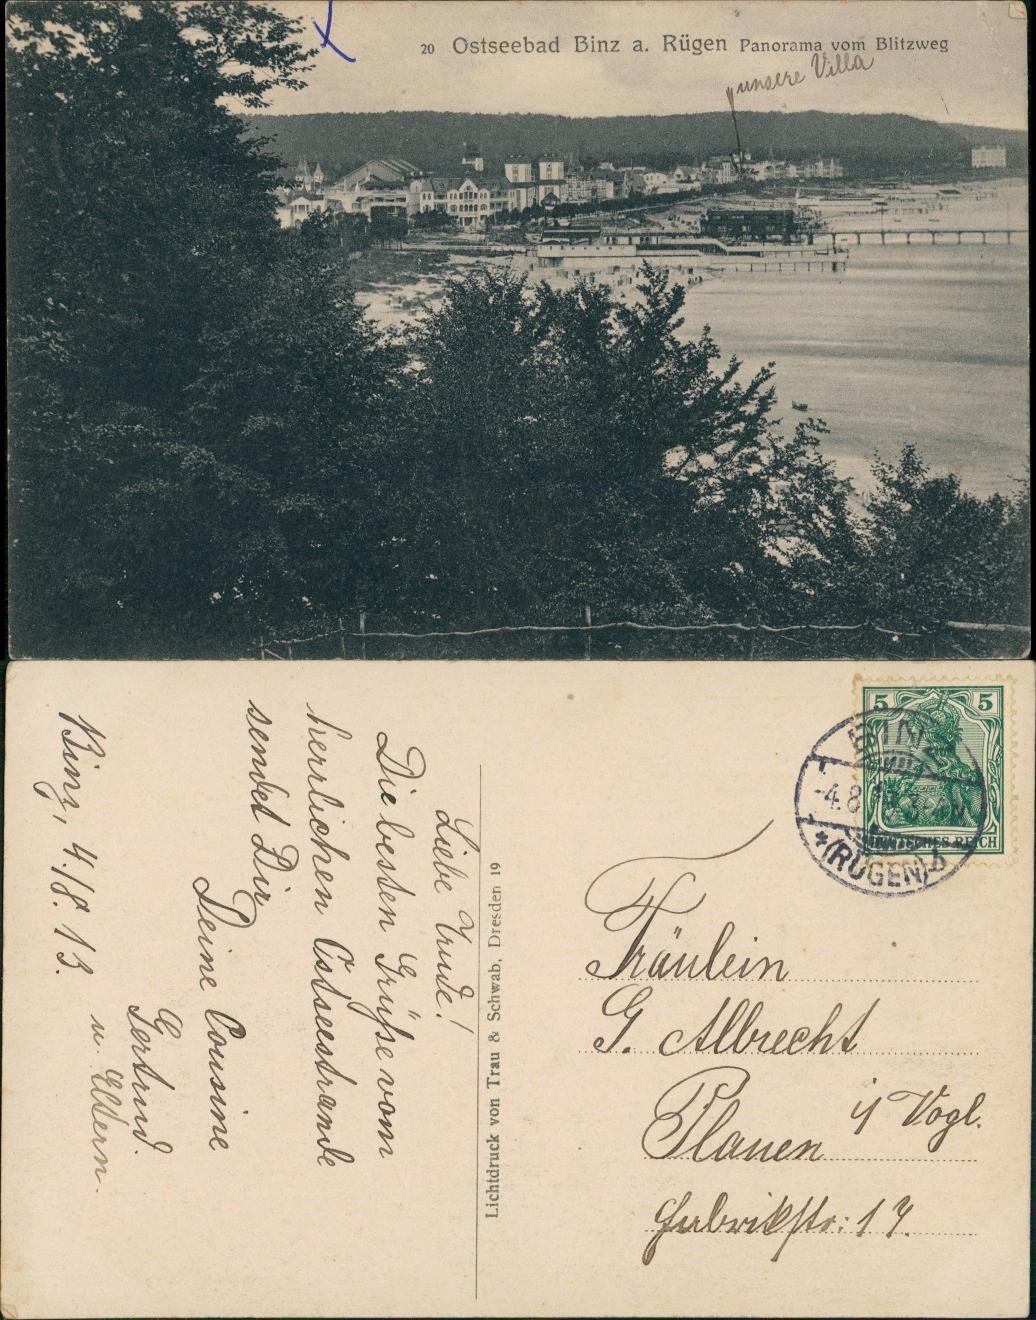 20 Ostseebad Binz a. Rügen Panorama vom Blitzweg
unsere Villa
Liebe Trude!
Die besten Grüße vom
herrlichen Ostseestrande
sendet Dir
Deine Cousine
Gertrud.
u. Eltern.
Binz, 4./8. 13.
Lichtdruck von Trau & Schwab, Dresden 19
5 5
DEUTSCHES REICH
BINZ
-4.8.13
*(RÜGEN) b
Fräulein
G. Albrecht
Plauen i/ Vogl.
Fabrikstr: 17.